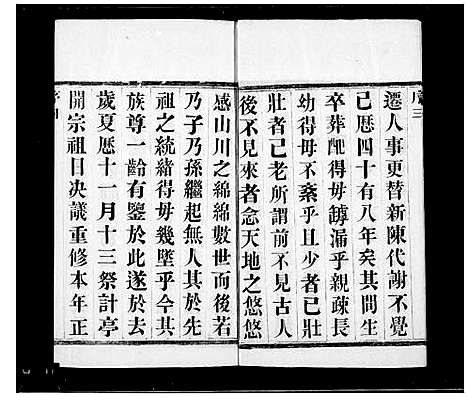 遷人事更替新陳代謝不覺
已歷四十有八年矣其間生
卒葬配得毋罅漏乎親疎長
幼得毋不紊乎且少者已壯
壯者已老所謂前不見古人
後不見來者念天地之悠悠
感山川之綿綿數世而後若
乃子乃孫繼起無人其於先
祖之統緒得毋幾墜乎今其
族尊一齡有鑒於此遂於去
歲夏歷十一月十三祭計亭
開宗祖日决議重修本年正